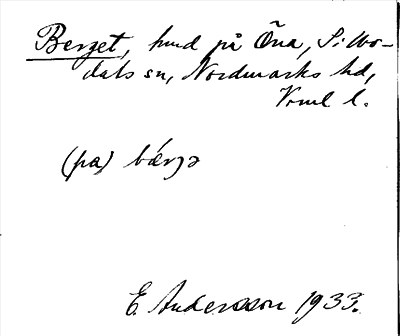 Berget, hmd på Õna, Silbo-
dals sn, Nordmarks hd,
Vrml l.
(pa) bǽrjə
E. Andersson 1933.